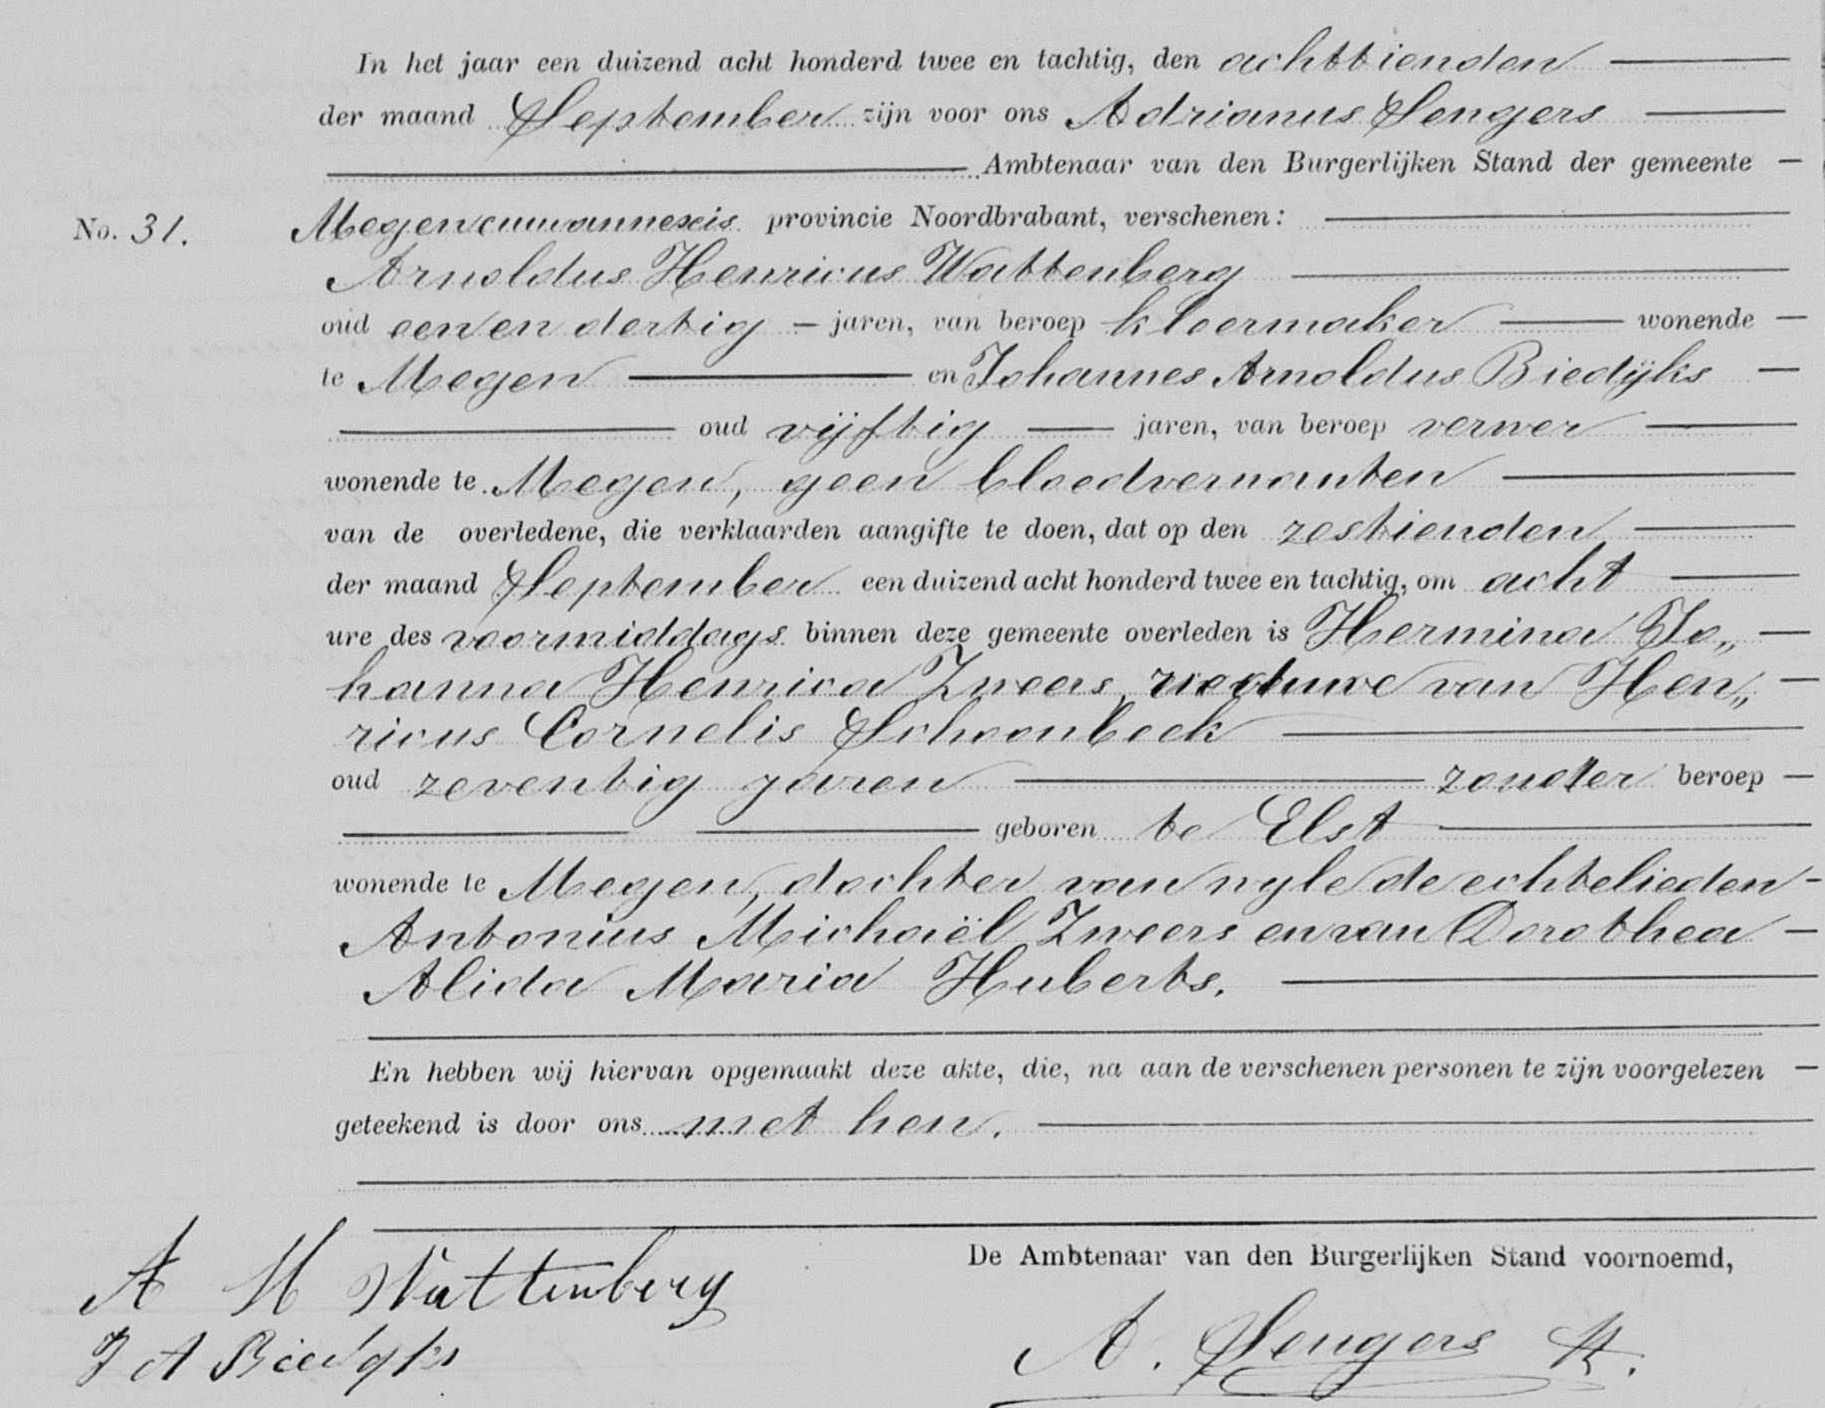 In het jaar een duizend acht honderd twee en tachtig, den achttienden
der maand September zijn voor ons Adrianus Sengers
Ambtenaar van den Burgerlijken Stand der gemeente
No. 31. Megen cum annexis provincie Noordbrabant, verschenen:
Arnoldus Henricus Wattenberg
oud een en dertig jaren, van beroep kleermaker wonende
te Megen en Johannes Arnoldus Biedijks
oud vijftig jaren, van beroep verwer
wonende te Megen, geen bloedverwanten
van de overledene, die verklaarden aangifte te doen, dat op den zestienden
der maand September een duizend acht honderd twee en tachtig, om acht
ure des voormiddags binnen deze gemeente overleden is Hermina Jo„
hanna Henrica Zweers, weduwe van Hen„
ricus Cornelis Schoonbeek
oud zeventig jaren zonder beroep
geboren te Elst
wonende te Megen, dochter van wyle de echtelieden
Antonius Michaël Zweers en van Dorothea
Alida Maria Huberts.
En hebben wij hiervan opgemaakt deze akte, die, na aan de verschenen personen te zijn voorgelezen
geteekend is door ons met hen.
De Ambtenaar van den Burgerlijken Stand voornoemd,
A H Wattenberg
J A Biedyks
A. Sengers